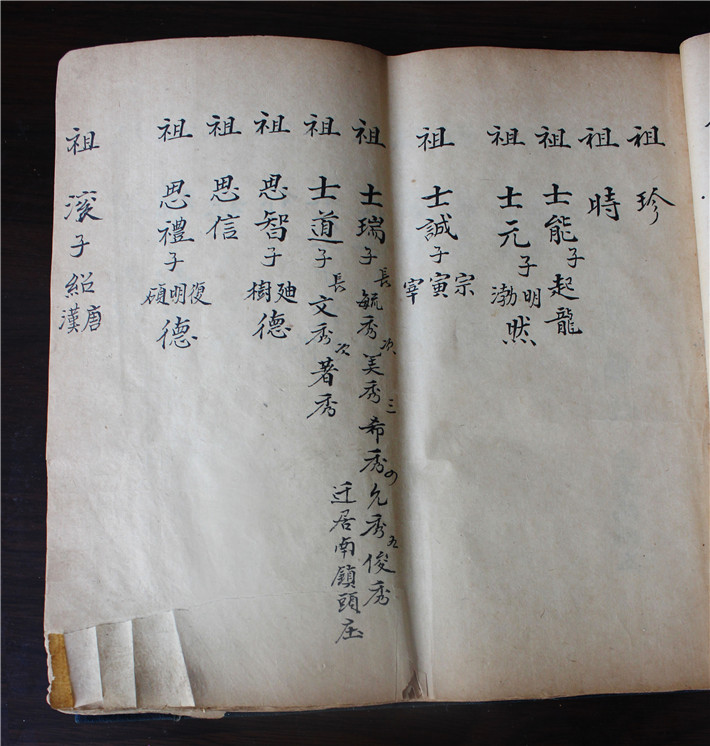 祖 珍
祖 時
祖 士能 子 起龍
祖 士元 子 明渤
祖 士誠 子 宗寅宰
祖 士瑞 子 長 毓秀 次 美秀 三 希秀 四 允秀 五 俊秀
迁居南鎮頭庄
祖 士道 子 長 文秀 次 著秀
祖 思智 子 廸樹德
祖 思信
祖 思禮 子 復明碩德
祖 滚 子 紹唐漢